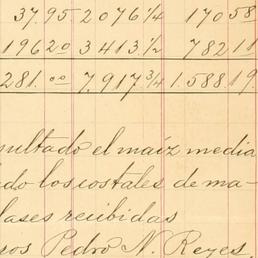 37.95. 2076 1/4 170 58
19620 3413. 1/2 782 11
281. 00 7.917 3/4 1.588 19.
sultado el maíz media
do los costales de ma-
lases recibidas
ros Pedro N. Reyes,